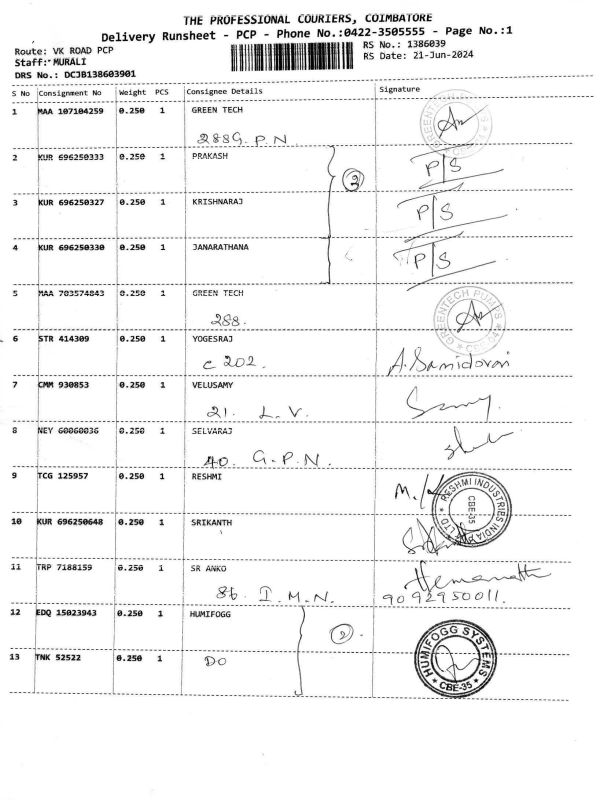 THE PROFESSIONAL COURIERS, COIMBATORE
Delivery Runsheet - PCP - Phone No.:0422-3505555 - Page No.:1
Route: VK ROAD PCP
RS No.: 1386039
Staff: MURALI
RS Date: 21-Jun-2024
DRS No.: DCJB138603901
S No Consignment No Weight PCS Consignee Details Signature
1 MAA 107104259 0.250 1 GREEN TECH
288 G.P.N.
2 KUR 696250333 0.250 1 PRAKASH P/S
3 KUR 696250327 0.250 1 KRISHNARAJ P/S
4 KUR 696250330 0.250 1 JANARATHANA P/S
3
5 MAA 703574843 0.250 1 GREEN TECH
GREENTECH PUMPS
288.
6 STR 414309 0.250 1 YOGESRAJ
C 202.
7 CMM 930853 0.250 1 VELUSAMY
21. L.V.
8 NEY 60060036 0.250 1 SELVARAJ
40. G.P.N.
9 TCG 125957 0.250 1 RESHMI
RESHMI INDUSTRIES INDIA LTD
CBE-35
10 KUR 696250648 0.250 1 SRIKANTH
11 TRP 7188159 0.250 1 SR ANKO
86. I.M.N. 9092950011.
12 EDQ 15023943 0.250 1 HUMIFOGG
2
HUMIFOGG SYSTEMS
CBE-35
13 TNK 52522 0.250 1 DO